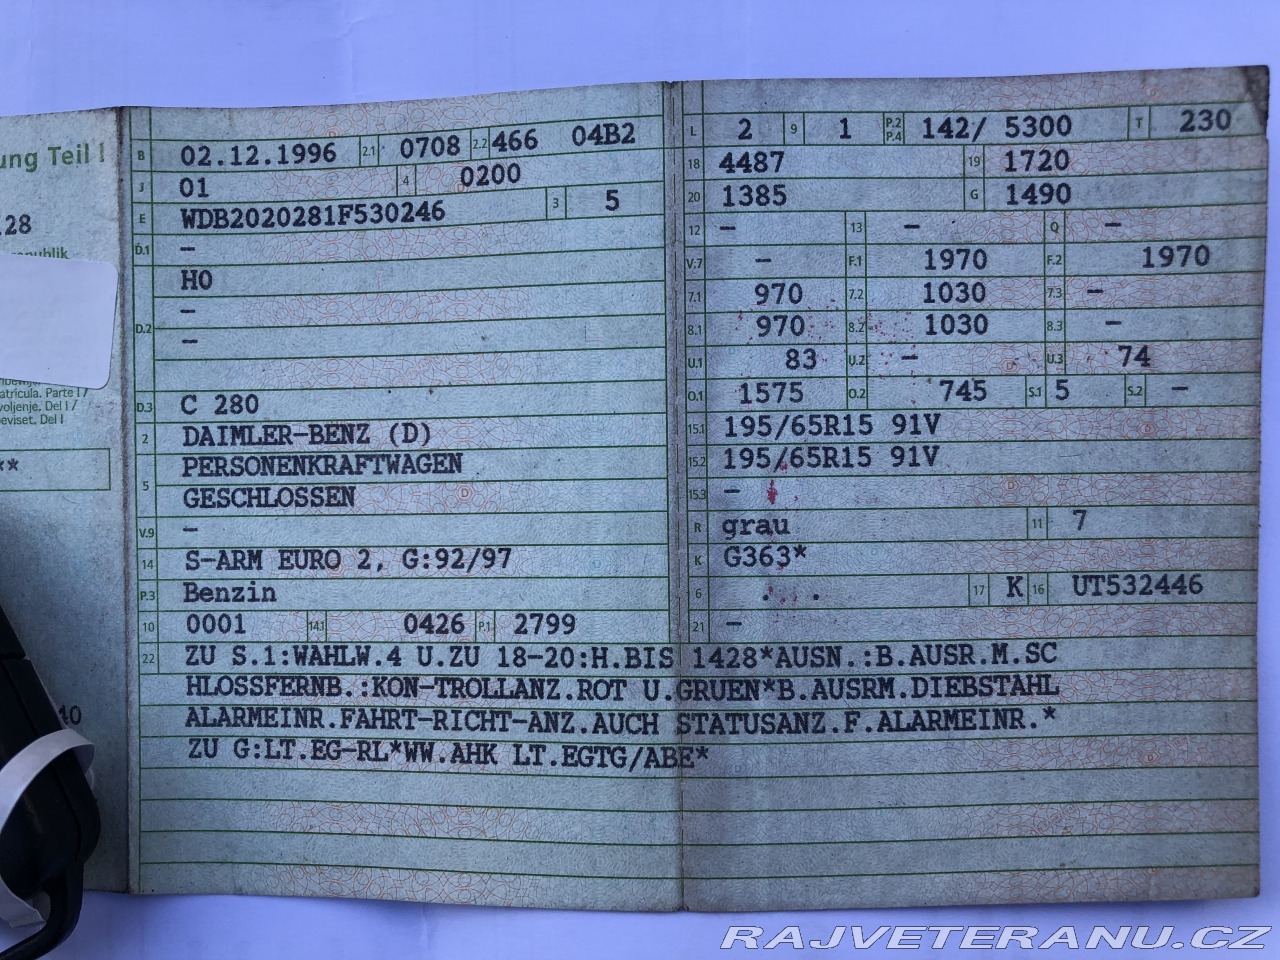 ung Teil I
128
republik
atrícula. Parte I /
voljenje. Del I /
beviset. Del I
**
40
B 02.12.1996 2.1 0708 2.2 466 04B2
J 01 4 0200
E WDB2020281F530246 3 5
D.1 –
D.2 H0
–
–
D.3 C 280
2 DAIMLER-BENZ (D)
5 PERSONENKRAFTWAGEN
GESCHLOSSEN
V.9 –
14 S-ARM EURO 2, G:92/97
P.3 Benzin
10 0001 14.1 0426 P.1 2799
L 2 9 1 P.2 P.4 142/ 5300 T 230
18 4487 19 1720
20 1385 G 1490
12 – 13 – Q –
V.7 – F.1 1970 F.2 1970
7.1 970 7.2 1030 7.3 –
8.1 970 8.2 1030 8.3 –
U.1 83 U.2 – U.3 74
O.1 1575 O.2 745 S.1 5 S.2 –
15.1 195/65R15 91V
15.2 195/65R15 91V
15.3 –
R grau 11 7
K G363*
6 17 K 16 UT532446
21 –
22 ZU S.1:WAHLW.4 U.ZU 18-20:H.BIS 1428*AUSN.:B.AUSR.M.SC
HLOSSFERNB.:KON-TROLLANZ.ROT U.GRUEN*B.AUSRM.DIEBSTAHL
ALARMEINR.FAHRT-RICHT-ANZ.AUCH STATUSANZ.F.ALARMEINR.*
ZU G:LT.EG-RL*WW.AHK LT.EGTG/ABE*
RAJVETERANU.CZ